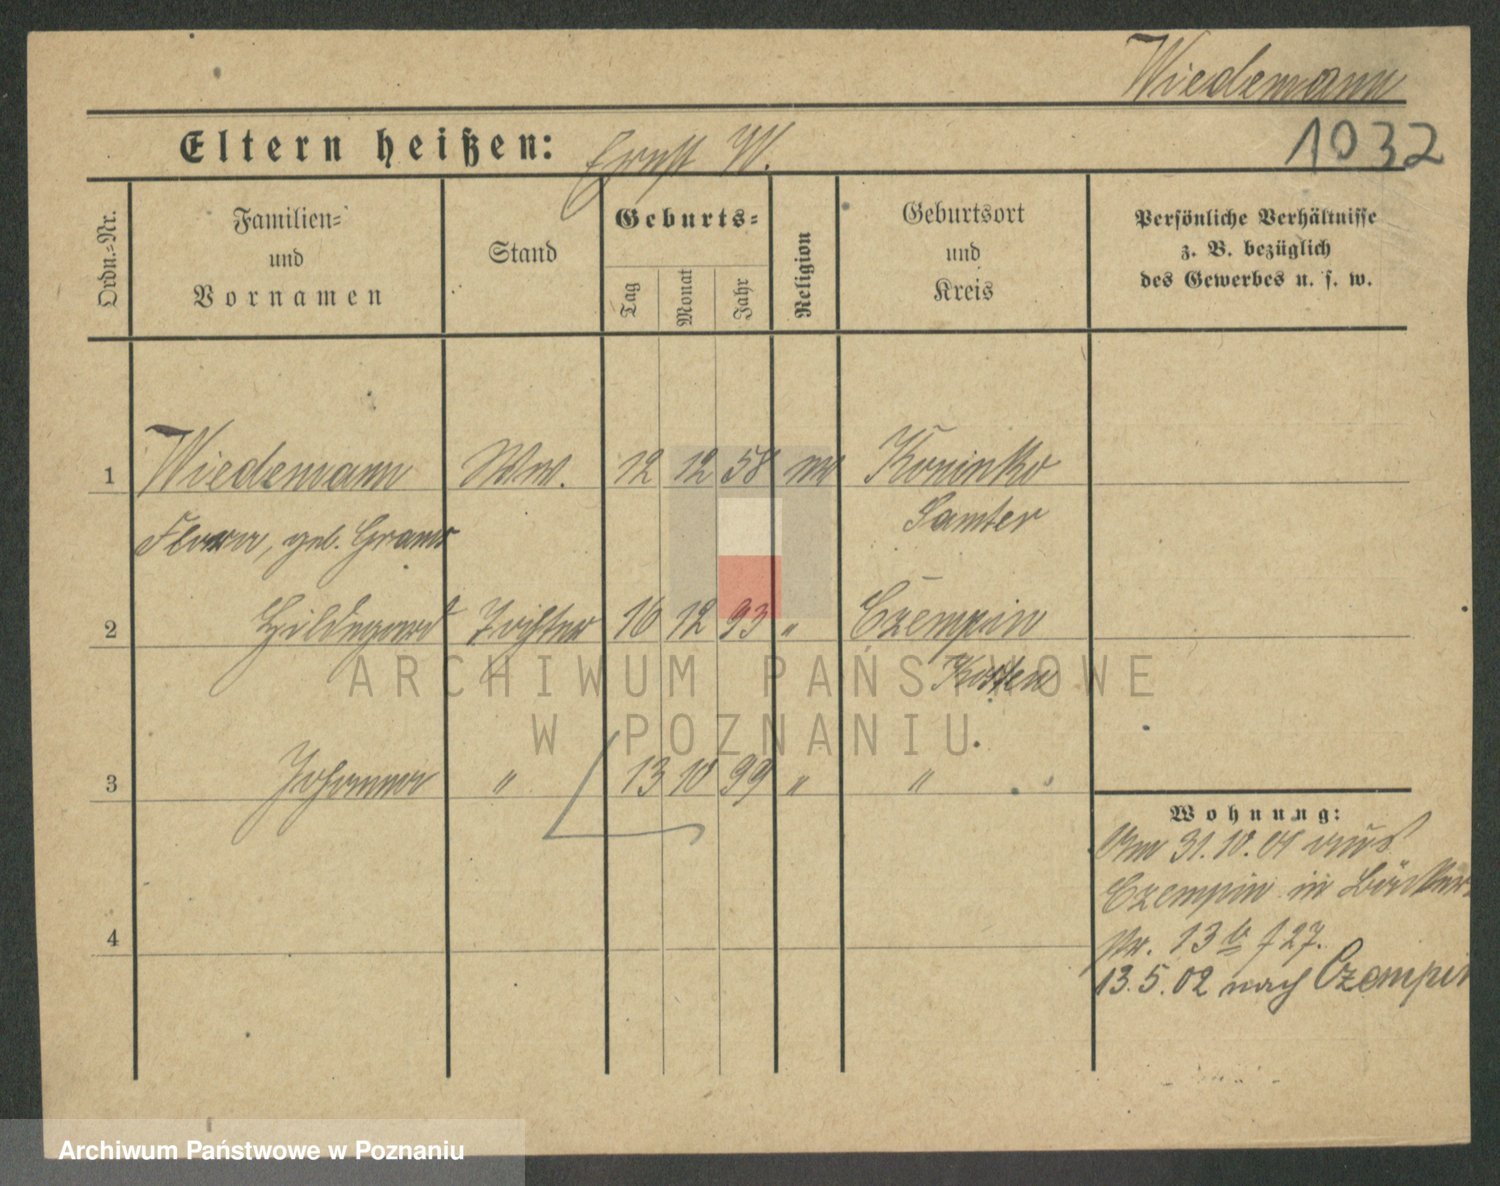 Wiedemann
1032
Eltern heißen: Ernst W.
Ordn.-Nr.
Familien-
und
Vornamen
Stand
Geburts-
Tag
Monat
Jahr
Religion
Geburtsort
und
Kreis
Persönliche Verhältnisse
z. B. bezüglich
des Gewerbes u. s. w.
1 Wiedemann Ww. 12 12 58 Koninko
Flora, geb. Samter
2 Hildegard Tochter 16 12 93 " Czempin
Kosten
3 Johanna " 13 10 99 " "
4
Wohnung:
Am 31.10.01 aus
Czempin in Bäcker-
str. 13 b f 27.
13.5.02 nach Czempin
ARCHIWUM PAŃSTWOWE
W POZNANIU
Archiwum Państwowe w Poznaniu